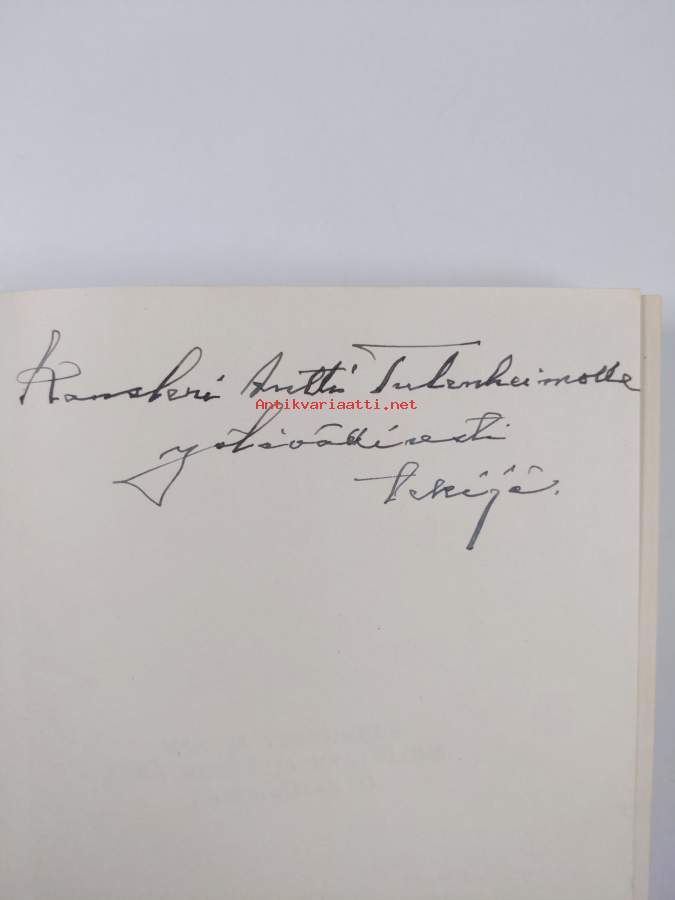 Kansleri Antti Tulenheimolle
Antikvariaatti.net
ystävällisesti
tekijä.